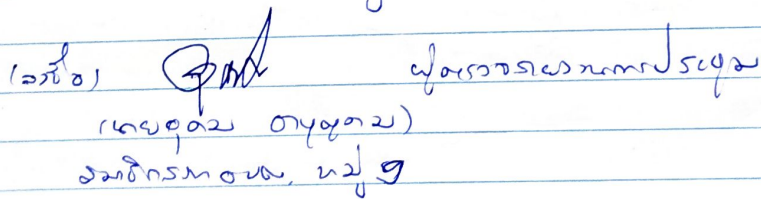 (ลงชื่อ) ผู้ตรวจรายงานการประชุม
(นายอุดม
สมาชิกสภา อบต. หมู่ 9